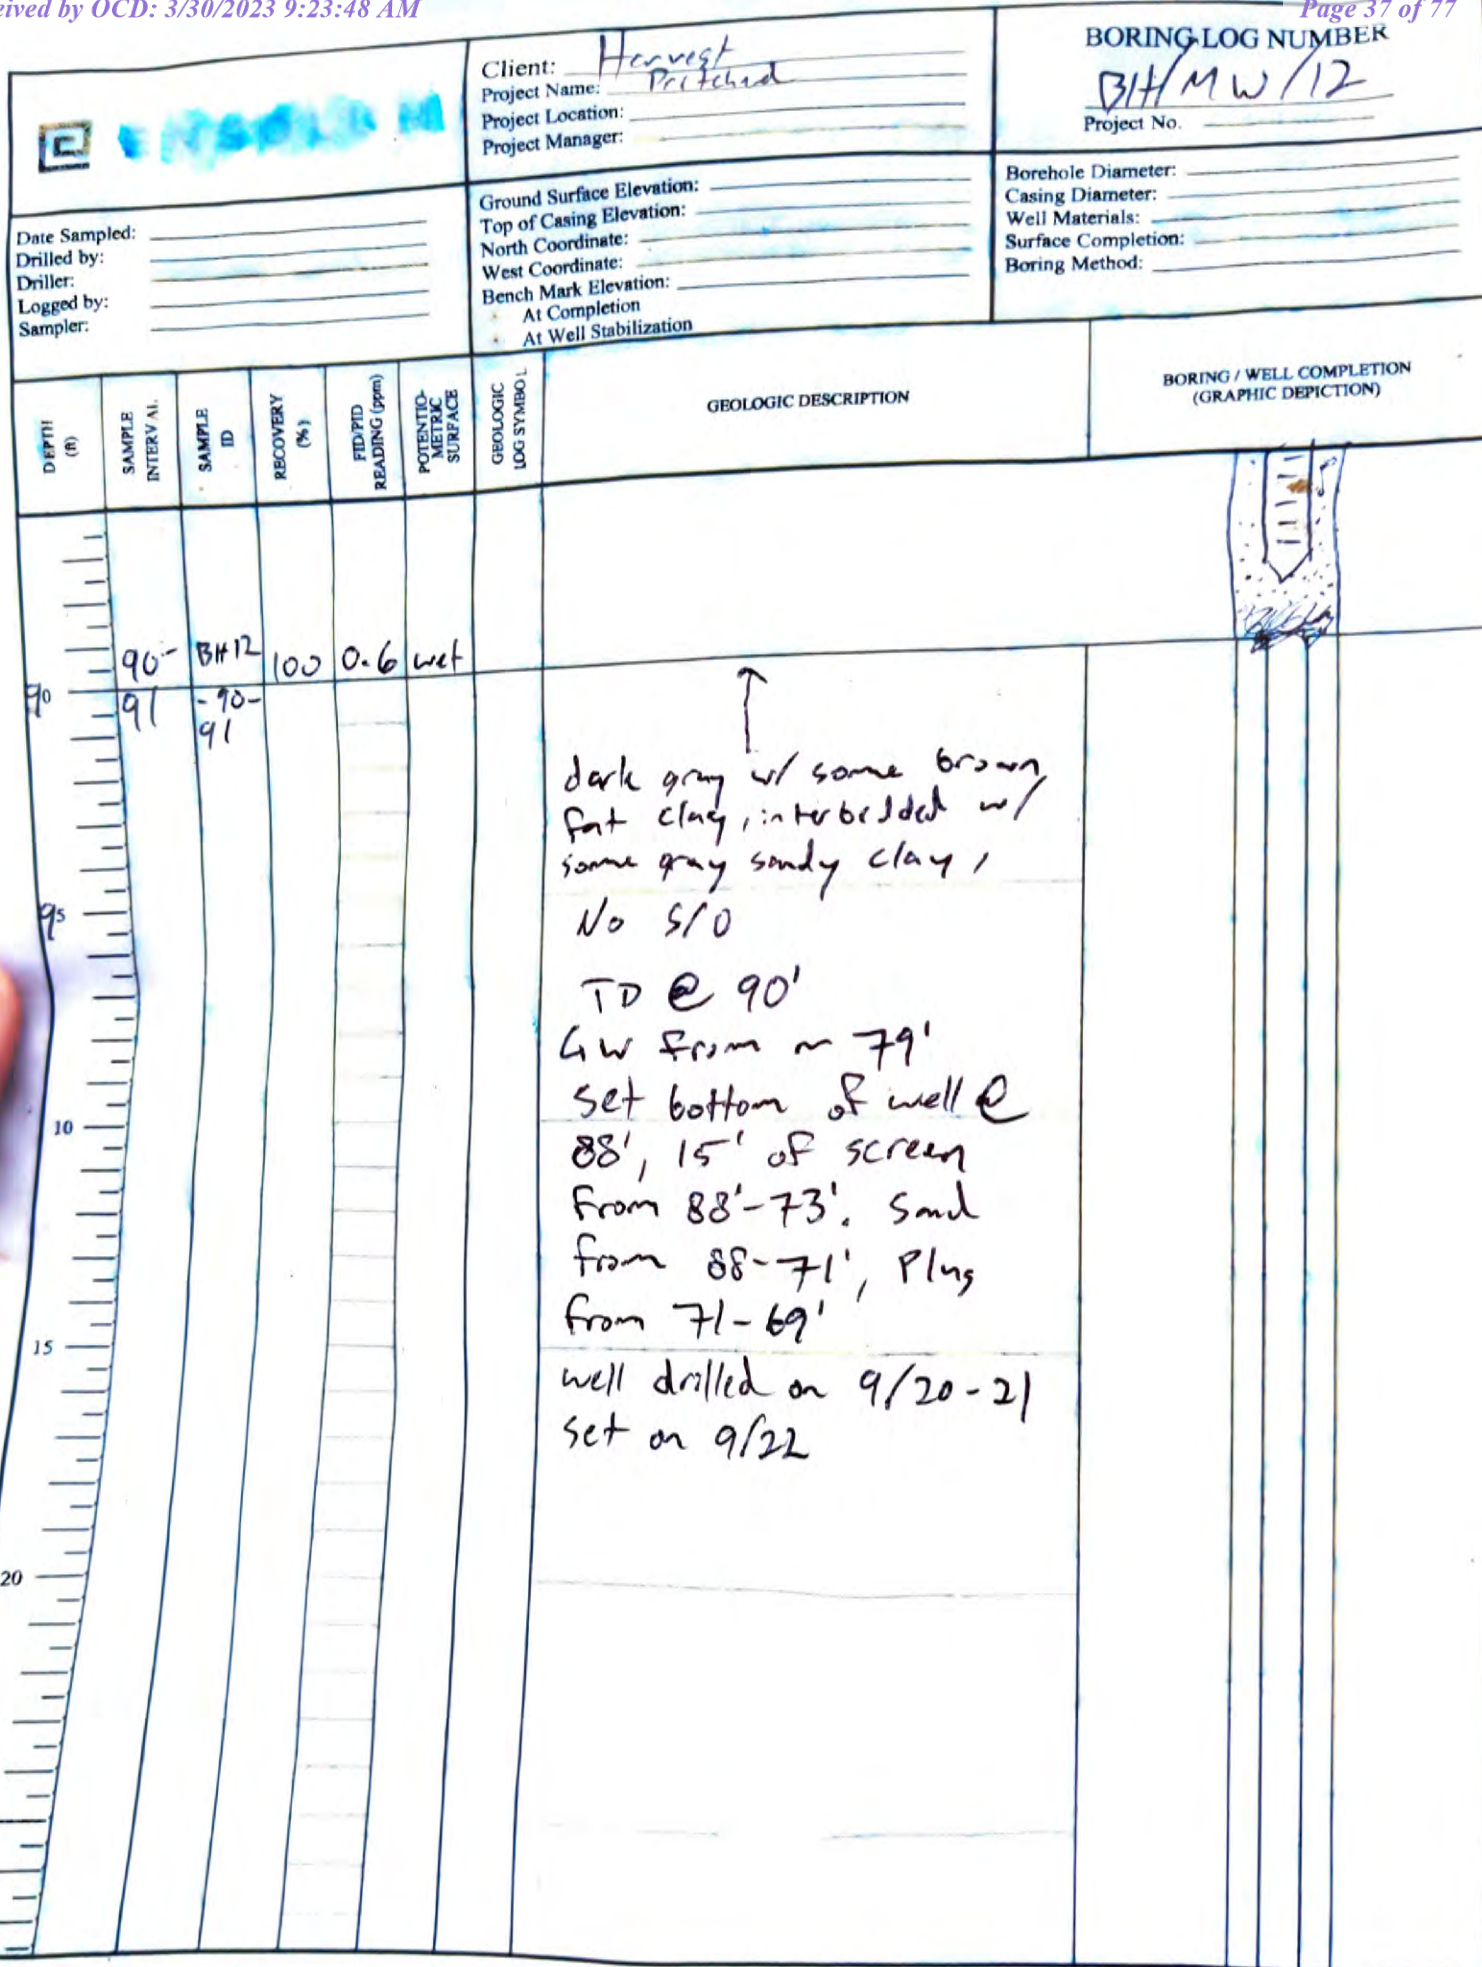 eived by OCD: 3/30/2023 9:23:48 AM
Page 37 of 77
Client: Harvest
Project Name: Pritchard
Project Location:
Project Manager:
BORING LOG NUMBER
BH/MW/12
Project No.
Date Sampled:
Drilled by:
Driller:
Logged by:
Sampler:
Ground Surface Elevation:
Top of Casing Elevation:
North Coordinate:
West Coordinate:
Bench Mark Elevation:
At Completion
At Well Stabilization
Borehole Diameter:
Casing Diameter:
Well Materials:
Surface Completion:
Boring Method:
DEPTH
(ft)
SAMPLE
INTERVAL
SAMPLE
ID
RECOVERY
(%)
FID/PID
READING (ppm)
POTENTIO-
METRIC
SURFACE
GEOLOGIC
LOG SYMBOL
GEOLOGIC DESCRIPTION
BORING / WELL COMPLETION
(GRAPHIC DEPICTION)
90- BH12 100 0.6 wet
90 91 -90-
91
dark gray w/ some brown
fat clay, interbedded w/
some gray sandy clay,
95
No S/O
TD @ 90'
GW from ~ 79'
set bottom of well @
10
88', 15' of screen
from 88'-73'. Sand
from 88-71', Plug
from 71-69'
15
well drilled on 9/20-21
set on 9/22
20